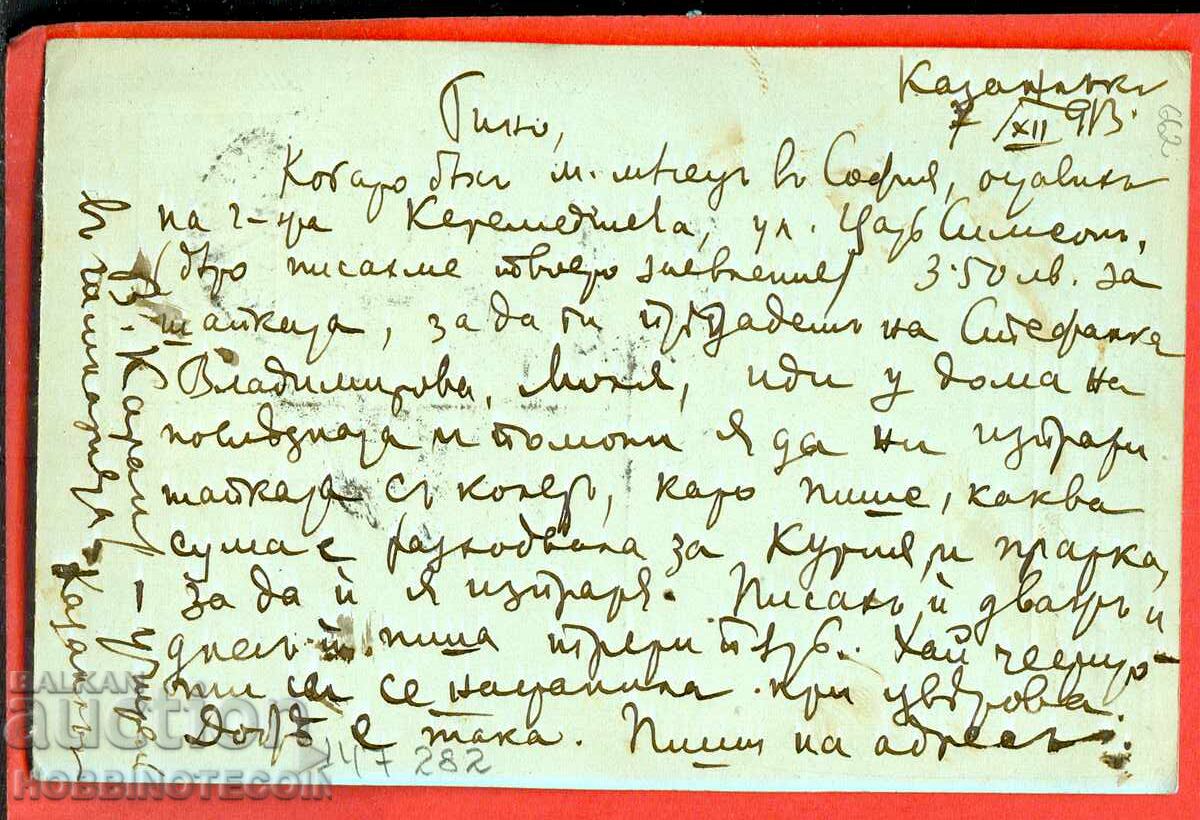 Казанлъкъ
7/XII 913.
662
Гино,
Когато бѣхъ м. месецъ въ София, оставихъ
на г-ца Керемедчиева, ул. Царъ Симеонъ,
(дѣто писахме твоето заявление) 3·50 лв. за
шапката, за да ги предадешъ на Стефанка
Владимирова. Моля, иди у дома на
последната и помоли я да ни изпрати
шапката съ колетъ, като пише, каква
сума е разходвана за кутия и пратка,
за да ѝ я изпратя. Писахъ ѝ дваж и
днесъ ѝ пиша трети пѫть. Хай честито
ти се настанила при
Добрѣ е така. Пиши на адресъ:
въ гимназията Казанлъкъ
147 282
BALKAN
auction
HOBBINOTECOIN